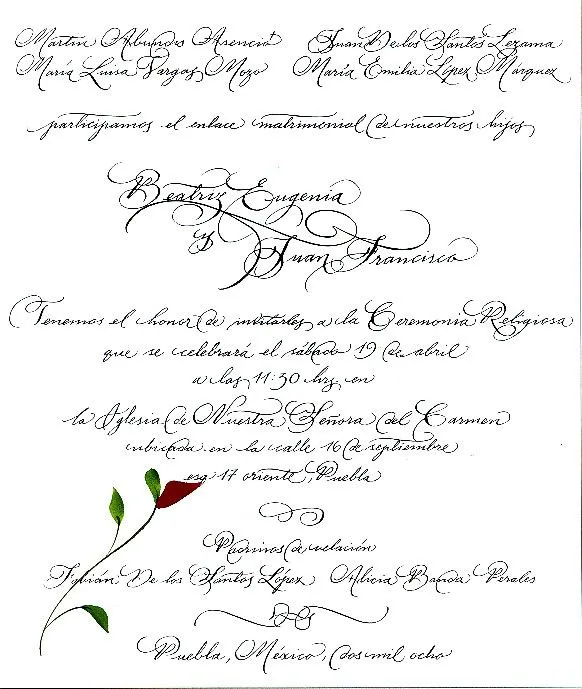 Martín Abundis Asencio Juan De los Santos Lezama
María Luisa Vargas Mozo María Emilia López Márquez
participamos el enlace matrimonial de nuestros hijos
Beatriz Eugenia
y
Juan Francisco
Tenemos el honor de invitarles a la Ceremonia Religiosa
que se celebrará el sábado 19 de abril
a las 11:30 hrs en
la Iglesia de Nuestra Señora del Carmen
ubicada en la calle 16 de septiembre
esq 17 oriente, Puebla
Padrinos de velación
Fabián De los Santos López Alicia Banda Perales
Puebla, México, dos mil ocho